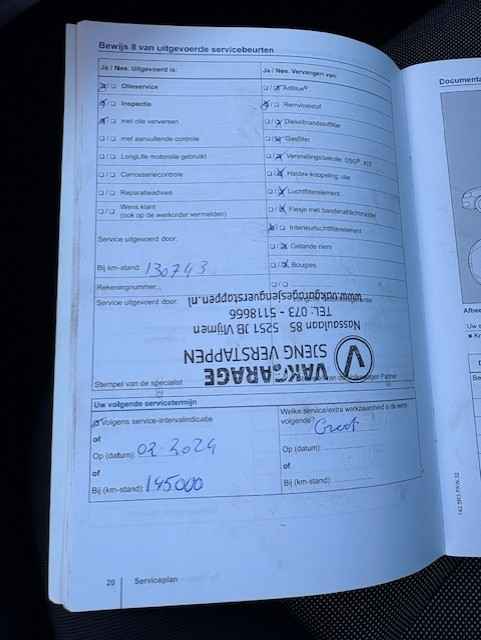 Bewijs 8 van uitgevoerde servicebeurten
Ja / Nee. Uitgevoerd is:
Olieservice
Inspectie
met olie verversen
met aanvullende controle
LongLife motorolie gebruikt
Carrosseriecontrole
Reparatieadvies
Wens klant
(ook op de werkorder vermelden)
Service uitgevoerd door:
Bij km-stand: 130743
Rekeningnummer:
Service uitgevoerd door:
Stempel van de specialist
Ja / Nee. Vervangen van:
AdBlue®
Remvloeistof
Dieselbrandstoffilter
Gasfilter
Versnellingsbakolie: DSG®
Haldex-koppeling: olie
Luchtfilterelement
Flesje met bandenafdichtmiddel
Interieurluchtfilterelement
Getande riem
Bougies
VAKGARAGE
SJENG VERSTAPPEN
Nassaulaan 85 5251 JB Vlijmen
TEL. 073 - 5118666
www.vakgaragesjengverstappen.nl
Partner
Uw volgende servicetermijn
Volgens service-intervalindicatie
of
Op (datum): 02-2024
of
Bij (km-stand): 145000
Welke service/extra werkzaamheid is de eerst
volgende? Groot
Op (datum):
of
Bij (km-stand):
20 Serviceplan
Documenta
Uw